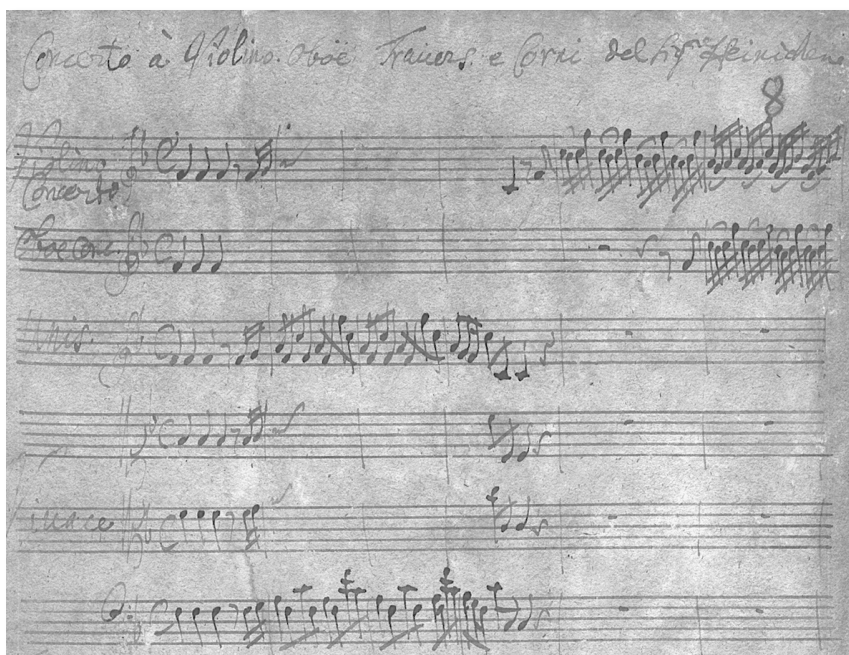 Concerto à Violino. Oboë Travers. e Corni del Sigre Heinichen
8
Violino
Concerto
Oboe Conc.
Unis.